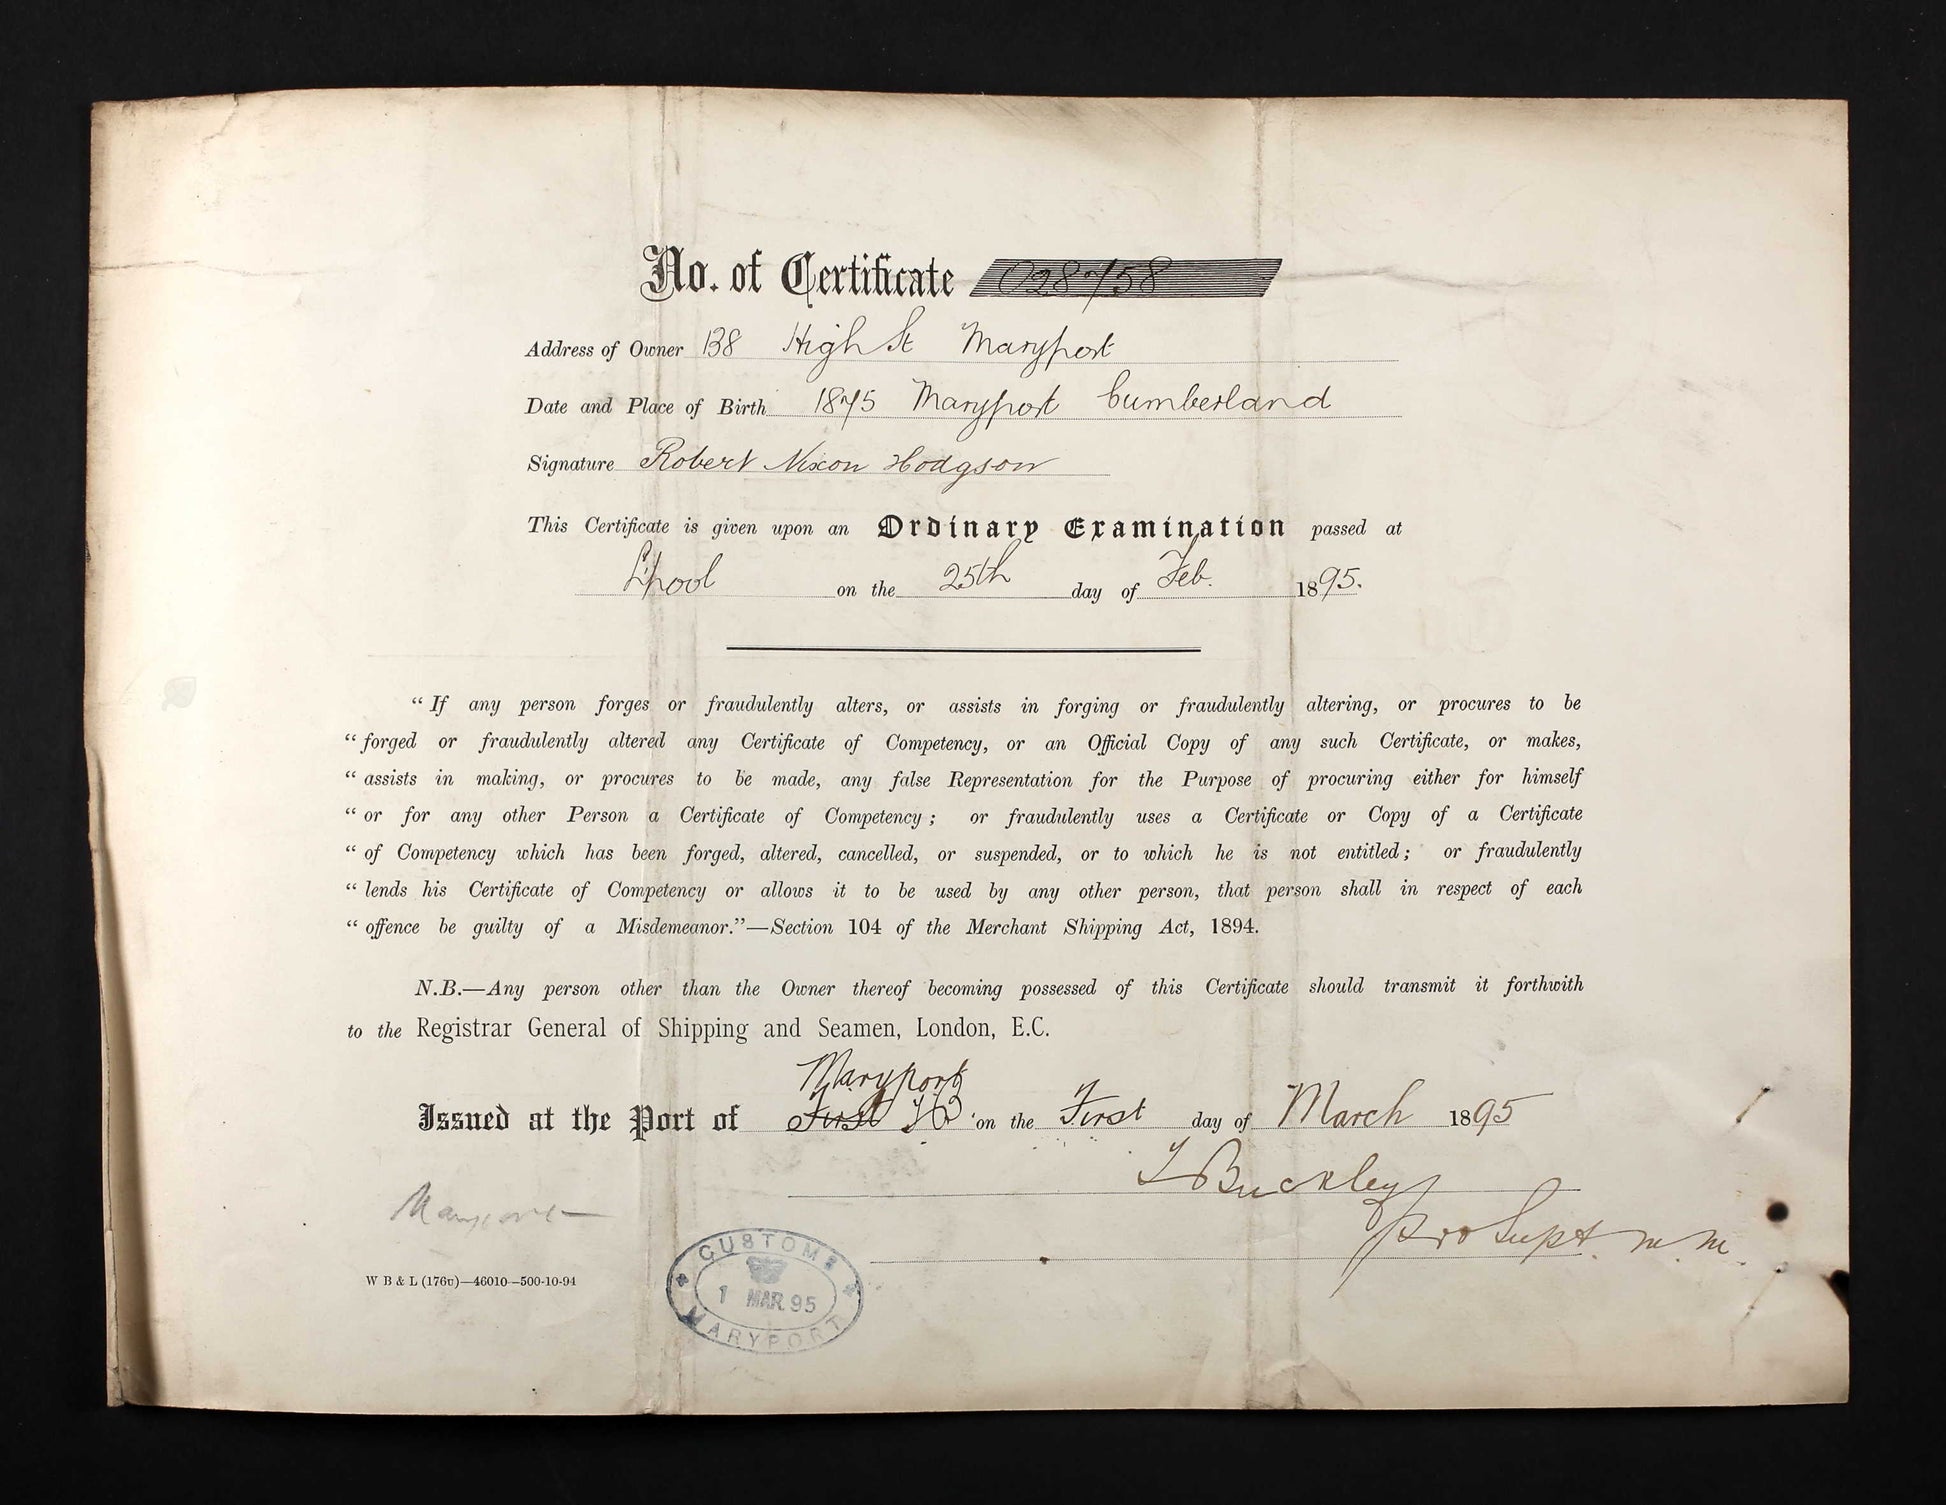 No. of Certificate 028758
Address of Owner 138 High St Maryport
Date and Place of Birth 1875 Maryport Cumberland
Signature Robert Nixon Hodgson
This Certificate is given upon an Ordinary Examination passed at
L'pool on the 25th day of Feb. 1895.
“ If any person forges or fraudulently alters, or assists in forging or fraudulently altering, or procures to be
“ forged or fraudulently altered any Certificate of Competency, or an Official Copy of any such Certificate, or makes,
“ assists in making, or procures to be made, any false Representation for the Purpose of procuring either for himself
“ or for any other Person a Certificate of Competency ; or fraudulently uses a Certificate or Copy of a Certificate
“ of Competency which has been forged, altered, cancelled, or suspended, or to which he is not entitled ; or fraudulently
“ lends his Certificate of Competency or allows it to be used by any other person, that person shall in respect of each
“ offence be guilty of a Misdemeanor.”—Section 104 of the Merchant Shipping Act, 1894.
N.B.—Any person other than the Owner thereof becoming possessed of this Certificate should transmit it forthwith
to the Registrar General of Shipping and Seamen, London, E.C.
Maryport
Issued at the Port of First on the First day of March 1895
Buckley
pro Supt. M. M.
Maryport
W B & L (176v)—46010—500-10-94
CUSTOMS
1 MAR. 95
MARYPORT